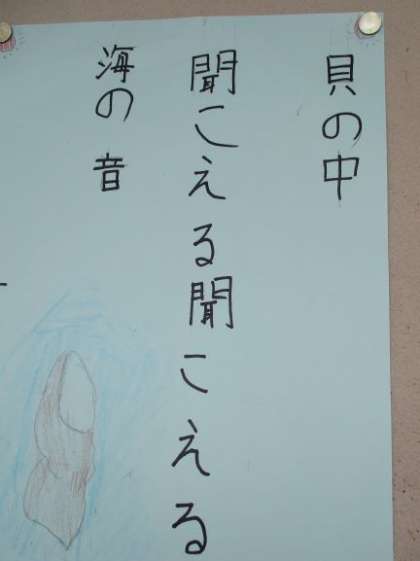 貝の中
聞こえる聞こえる
海の音